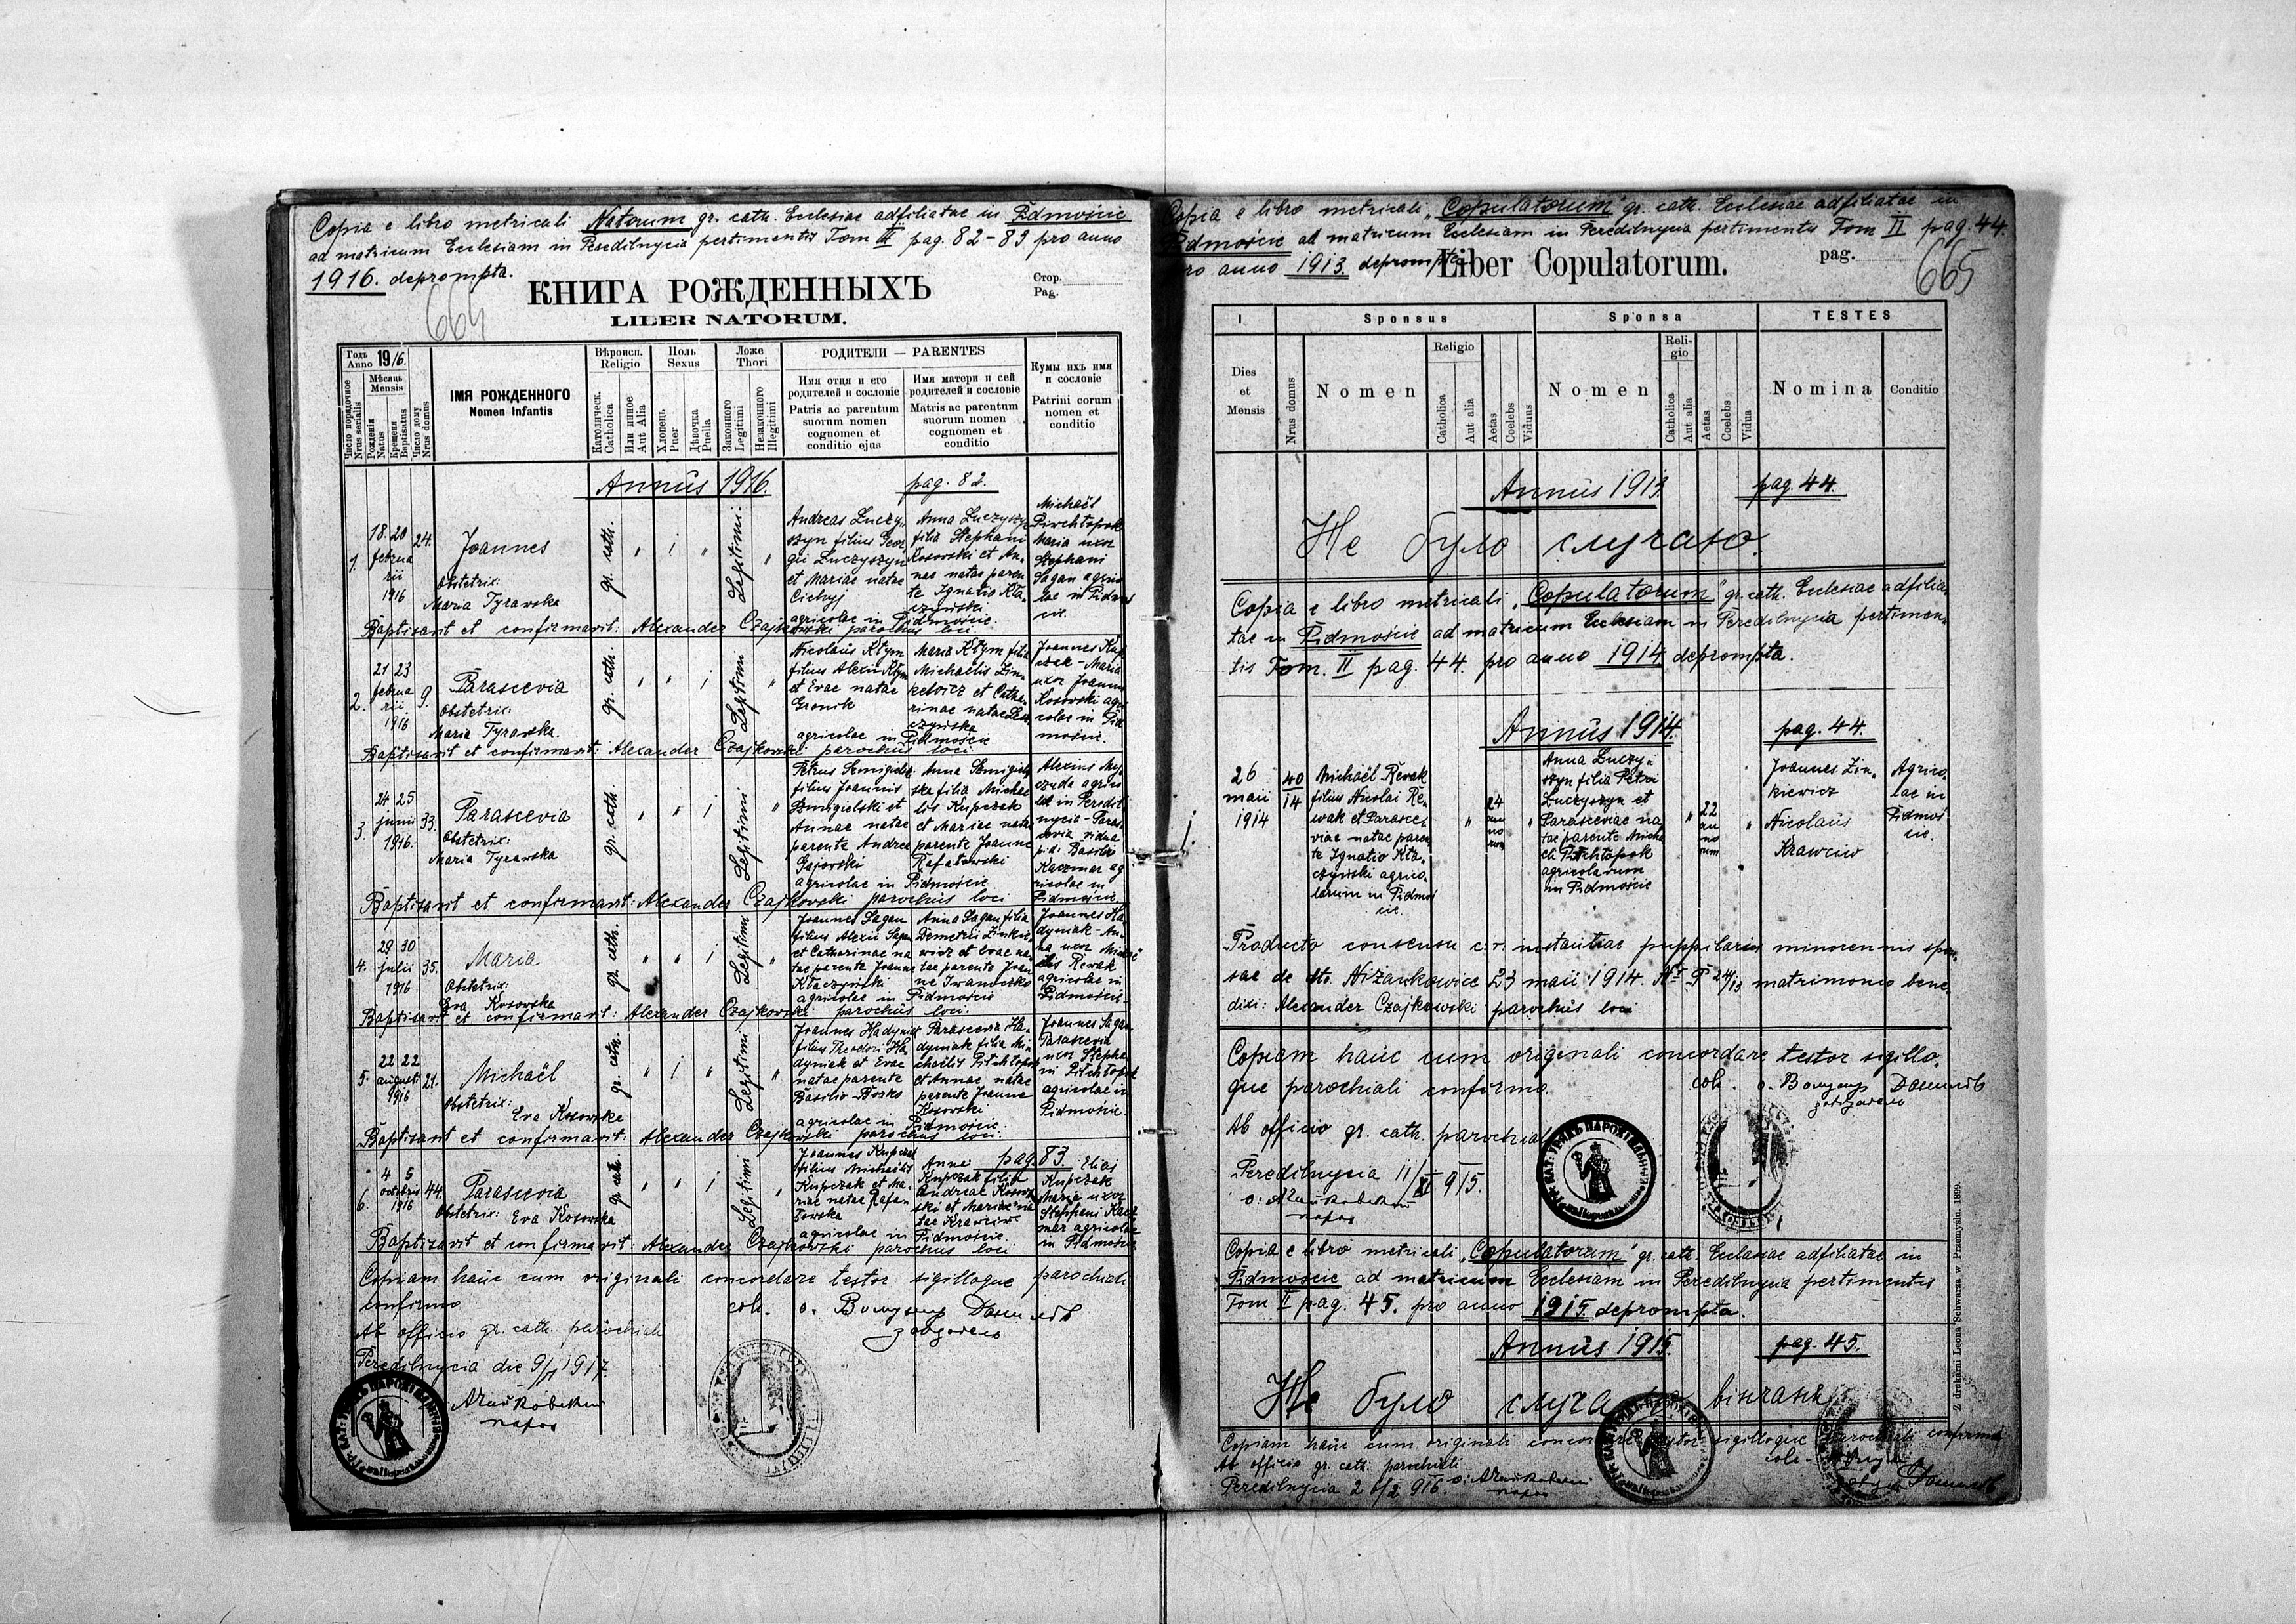 Copia e libro metricali Natorum gr. cath. Ecclesiae adfiliatae in Pidmoście
ad matricum Ecclesiam in Peredilnycia pertinentis Tom III pag. 82-83 pro anno
1916. deprompta.
664
КНИГА РОЖДЕННЫХЪ
LIBER NATORUM.
Стор.
Pag.
Годъ
Anno 1916.
Число порядочное
Nrus serialis
Мѣсяць
Mensis
Рожденія
Natus
Крщенія
Baptisatus
Число дому
Nrus domus
ІМЯ РОЖДЕННОГО
Nomen Infantis
Вѣроисп.
Religio
Католическ.
Catholica
Или инное
Aut Alia
Полъ
Sexus
Хлопець
Puer
Дѣвочка
Puella
Ложе
Thori
Законного
Legitimi
Незаконного
Illegitimi
РОДИТЕЛИ — PARENTES
Имя отця и его
родителей и сословіе
Patris ac parentum
suorum nomen
cognomen et
conditio ejus
Имя матери и сей
родителей и сословіе
Matris ac parentum
suorum nomen
cognomen et
conditio
Кумы ихъ имя
и сословіе
Patrini eorum
nomen et
conditio
Annus 1916. pag. 82.
1.
18. 20
februa
rii
1916
24.
Joannes
Obstetrix:
Maria Tyrawska
gr. cath.
Legitimi
Andreas Łuczy-
szyn filius Geor-
gii Łuczyszyn
et Mariae natae
Cichyj
Anna Łuczyszyn
filia Stephani
Kosowski et An-
nae natae paren-
te Ignatio Kła-
czyński
agricolae in Pidmoście.
Michaël
Maria uxor
Stephani
Sagan agrico
lae in Pidmoś
cie.
Baptisavit et confirmavit: Alexander Czajkowski parochus loci.
2.
21 23
februa
rii
1916
9.
Parascevia
Obstetrix:
Maria Tyrawska.
gr. cath.
Legitimi
Nicolaus Kłym
filius Alexii Kłym
et Evae natae
Gronik
Maria Kłym filia
Michaëlis Zin-
kewicz et Catha-
rinae natae
agricolae in Pidmoście
Joannes Kup
czak - Maria
uxor Joannis
Kosowski agri
colae in Pid
moście.
Baptisavit et confirmavit: Alexander Czajkowski parochus loci.
3.
24 25
junii
1916.
33.
Parascevia
Obstetrix:
Maria Tyrawska
gr. cath
Legitimi
Petrus Szmigielski
filius Joannis
Szmigielski et
Annae natae
parente Andrea
Gajowski
Anna Szmigiel
ska filia Michae
lis Kupczak
et Mariae natae
parente Joanne
Rafałowski
agricolae in Pidmoście
Kaczmar ag
ricolae in
Pidmoście.
Baptisavit et confirmavit: Alexander Czajkowski parochus loci
4.
29 30
julii
1916
35.
Maria
Obstetrix:
Eva Kosowska
gr. cath.
Legitimi
Joannes Sagan
filius Alexii Sagan
et Catharinae na
tae parente Joanne
Kłaczyński
Anna Sagan filia
Demetrii Zinke-
wicz et Evae na
tae parente Joan
ne Iwaneczko
agricolae in Pidmoście
Joannes Ha
dyniak - An-
na uxor Micha
ëlis Rewak
agricolae in
Pidmoście.
Baptisavit et confirmavit: Alexander Czajkowski parochus loci.
5.
22 22
augusti
1916
21.
Michaël
Obstetrix:
Eva Kosowska
gr. cath.
Legitimi
Joannes Hadyniak
filius Theodori Ha
dyniak et Evae
natae parente
Basilio Borko
Parascevia Ha-
dyniak filia Mi-
chaëlis Pitchtopok
et Annae natae
parente Joanne
Kosowski
agricolae in Pidmoście.
Joannes Sagan
Parascevia
uxor Stepha
ni Pitchtopok
agricolae in
Pidmoście.
Baptisavit et confirmavit: Alexander Czajkowski parochus loci.
pag. 83.
6.
4 5
octobris
1916
44.
Parascevia
Obstetrix: Eva Kosowska
gr. cath.
Legitimi
Joannes Kupczak
filius Michaëlis
Kupczak et Ma-
riae natae Rafa-
łowska
Anna
Kupczak filia
Andreae Kosow
ski et Mariae na
tae Krawciw
agricolae in Pidmoście.
Elias
Kupczak
Maria uxor
Stephani Kacz
mar agricolae
in Pidmoście
Baptisavit et confirmavit: Alexander Czajkowski parochus loci
Copiam hanc cum originali concordare testor sigilloque parochiali
confirmo.
Ab officio gr. cath. parochiali
Peredilnycia die 9/I 1917.
Copia e libro metricali „Copulatorum" gr. cath. Ecclesiae adfiliatae in
Pidmoście ad matricum Ecclesiam in Peredilnycia pertinentis Tom II pag. 44.
pro anno 1913. deprompta
Liber Copulatorum.
pag.
665
I
Dies
et
Mensis
Nrus domus
Sponsus
Nomen
Religio
Catholica
Aut alia
Aetas
Coelebs
Viduus
Sponsa
Nomen
Reli-
gio
Catholica
Aut alia
Aetas
Coelebs
Vidua
TESTES
Nomina
Conditio
Annus 1913. pag. 44.
Не було случаю.
Copia e libro metricali „Copulatorum" gr. cath. Ecclesiae adfilia-
tae in Pidmoście ad matricum Ecclesiam in Peredilnycia pertinen-
tis Tom. II pag. 44. pro anno 1914 deprompta.
Annus 1914. pag. 44.
26
maii
1914
40
14
Michaël Rewak
filius Nicolai Re-
wak et Parasce-
viae natae paren
te Ignatio Kła-
czyński agrico-
larum in Pidmoś
cie.
24
an
no
rum
Anna Łuczy-
szyn filia Petri
Łuczyszyn et
Parasceviae na
tae parente Micha
ële Pitchtopok
agricolarum
in Pidmoście
22
an
no
rum
Joannes Zin-
kiewicz
Nicolaus
Krawciw
Agrico-
lae in
Pidmoś
cie.
Producto consensu c.r. instantiae puppilaris minorennis spon-
sae de dto. Niżankowice 23 maii 1914. Nr P 24/13 matrimonio bene-
dixi: Alexander Czajkowski parochus loci
Copiam hanc cum originali concordare testor sigillo-
que parochiali confirmo.
Ab officio gr. cath. parochiali
Peredilnycia 11/XI 915.
Copia e libro metricali „Copulatorum" gr. cath. Ecclesiae adfiliatae in
Pidmoście ad matricum Ecclesiam in Peredilnycia pertinentis
Tom II pag. 45. pro anno 1915. deprompta.
Annus 1915. pag. 45.
Не було
Copiam hanc cum originali concordare testor sigilloque parochiali confirmo
Ab officio gr. cath. parochiali
Z drukarni Leona Schwarza w Przemyślu. 1899.